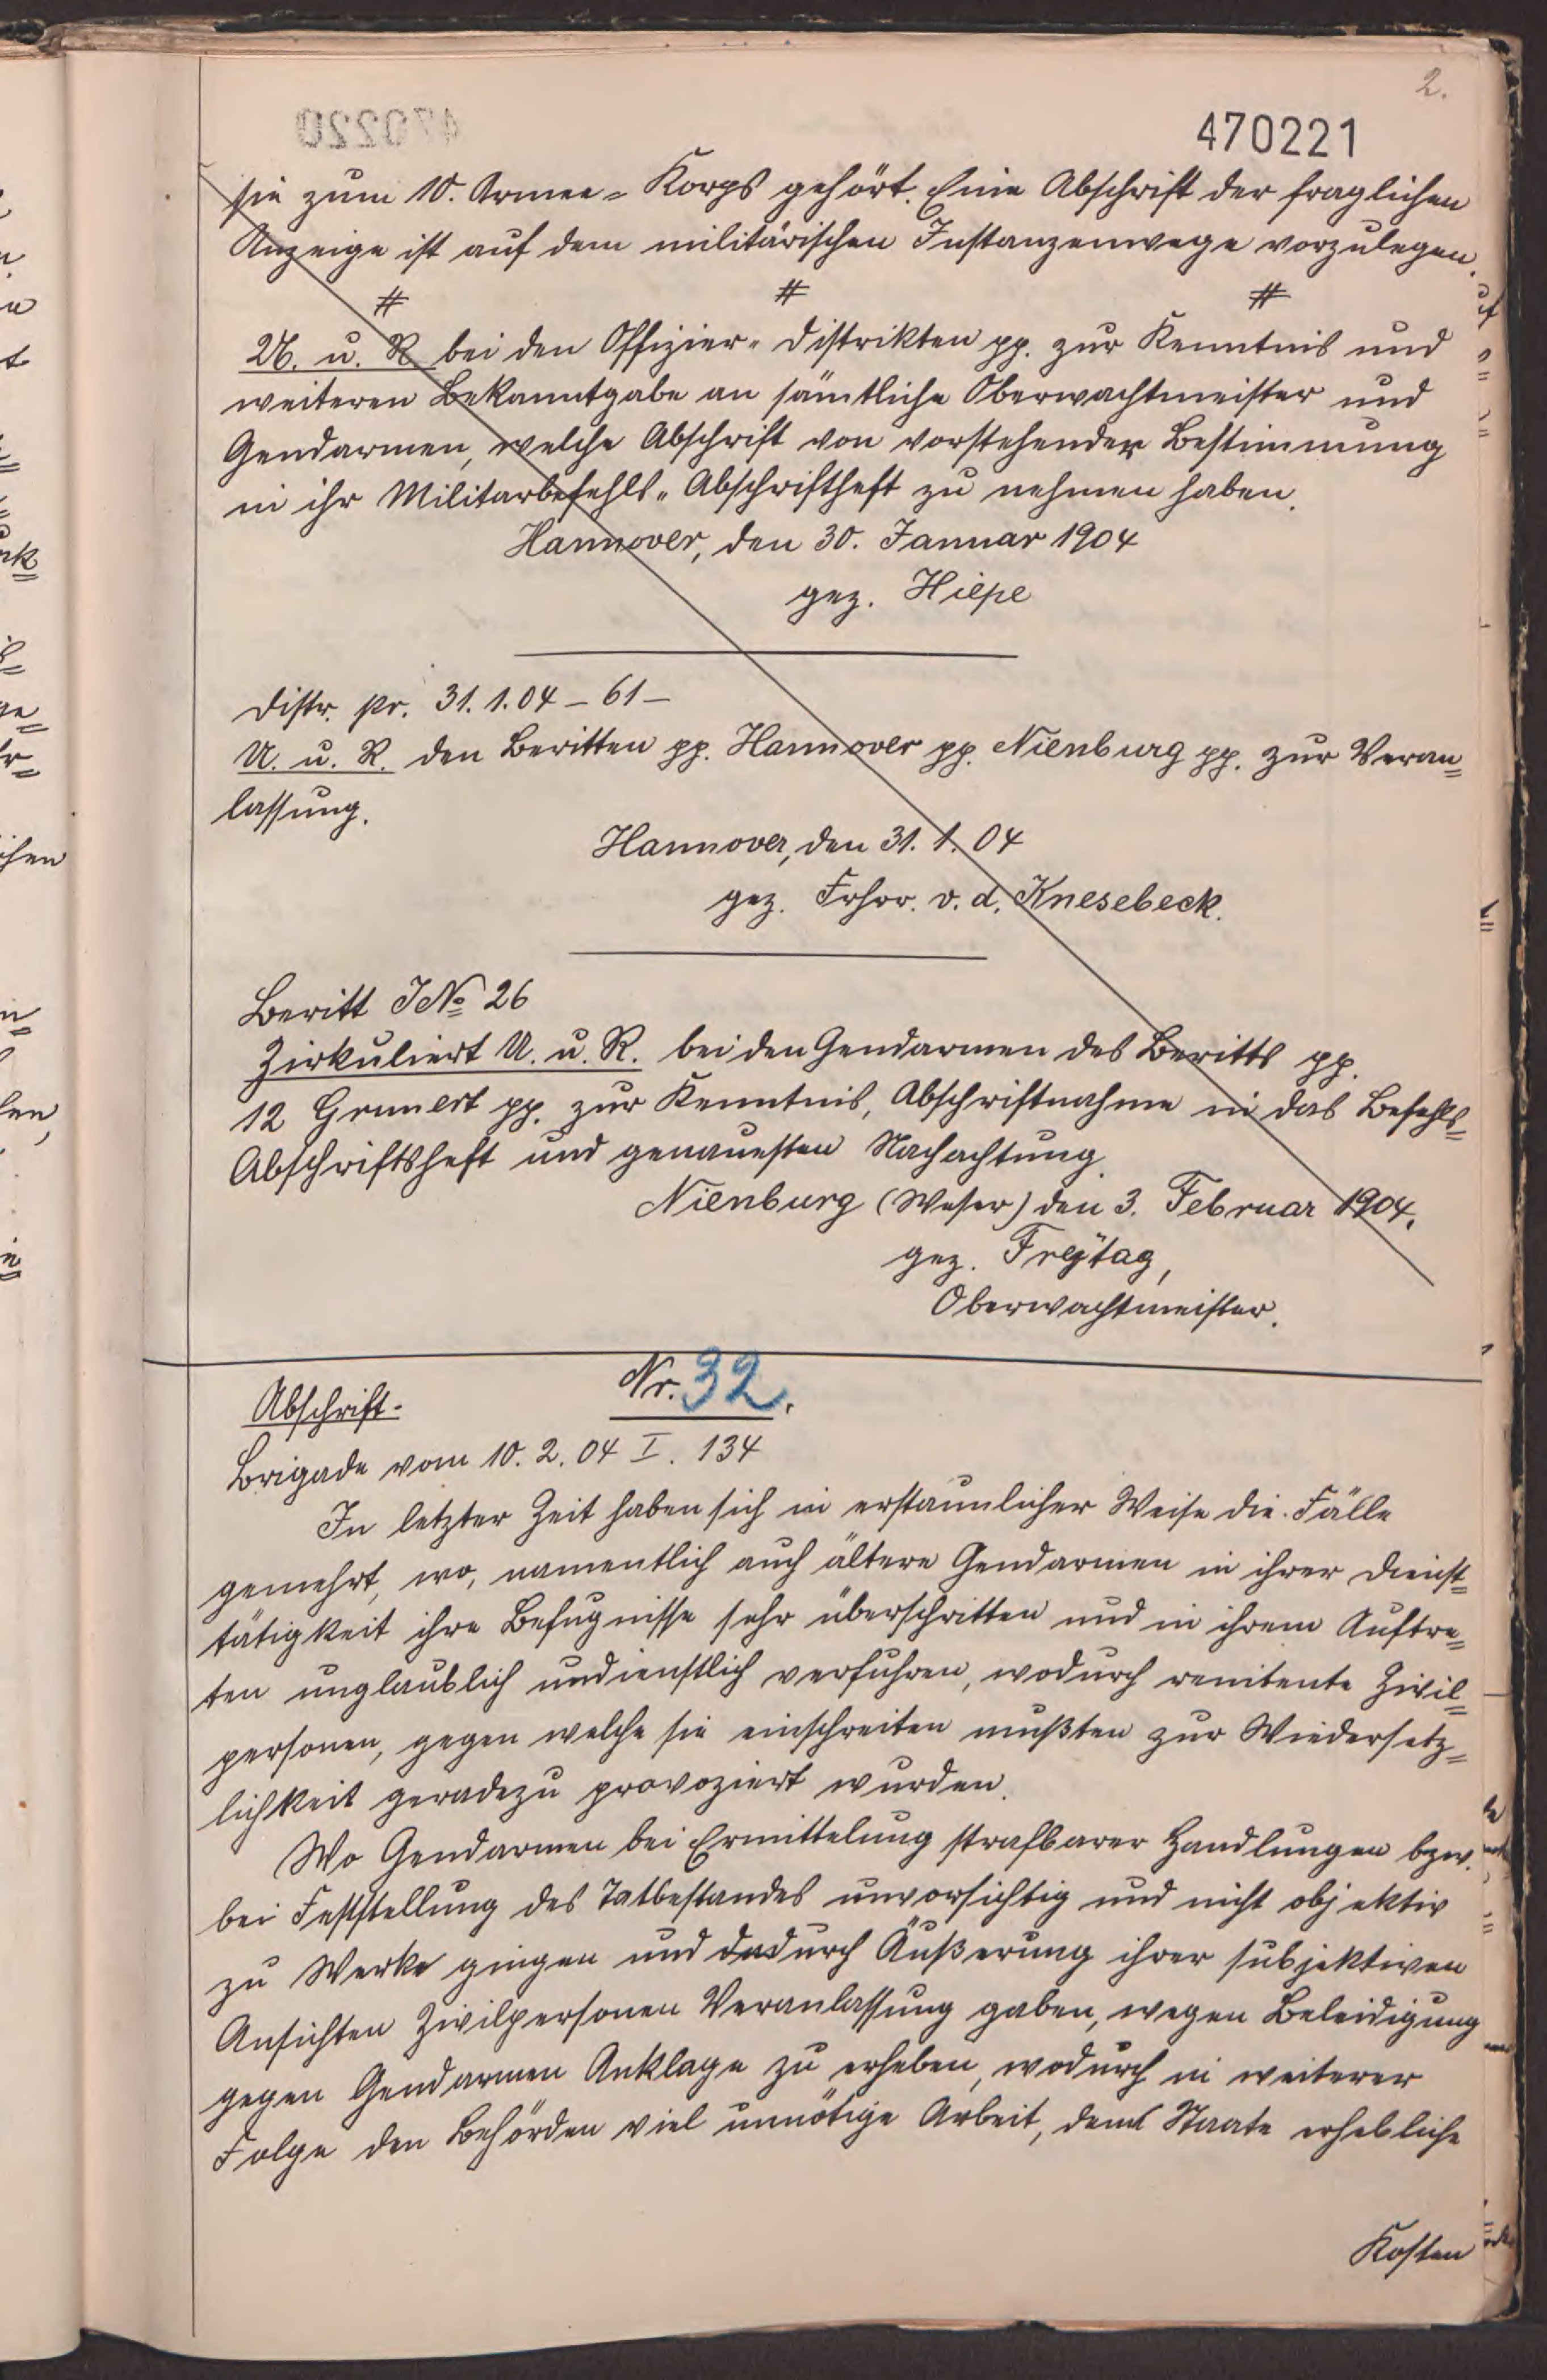 2.
470221
470220
sie zum 10. Armee-Korps gehört. Eine Abschrift der fraglichen
Anzeige ist auf dem militärischen Instanzenwege vorzulegen.
# # #
U. u. R. bei den Offizier-Distrikten pp. zur Kenntnis und
weiteren Bekanntgabe an sämtliche Oberwachtmeister und
Gendarmen, welche Abschrift von vorstehender Bestimmung
in ihr Militärbefehls-Abschriftheft zu nehmen haben.
Hannover, den 30. Januar 1904
gez. Hiepe
Distr. pr. 31.1.04 – 61 –
U. u. R. den Beritten pp. Hannover pp. Nienburg pp. zur Veran=
lassung.
Hannover, den 31.1.04
gez. Frhr. v. d. Knesebeck.
Beritt J№ 26
Zirkuliert U. u. R. bei den Gendarmen des Beritts pp.
12 Grunert pp. zur Kenntnis, Abschriftnahme in das Befehls=
Abschriftsheft und genauesten Nachachtung.
Nienburg (Weser) den 3. Februar 1904.
gez. Freÿtag,
Oberwachtmeister.
Nr. 32.
Abschrift.
Brigade vom 10.2.04 I. 134
In letzter Zeit haben sich in erstaunlicher Weise die Fälle
gemehrt, wo, namentlich auch ältere Gendarmen in ihrer Dienst=
tätigkeit ihre Befugnisse sehr überschritten und in ihrem Auftre=
ten unglaublich undienstlich verfuhren, wodurch renitente Zivil=
personen, gegen welche sie einschreiten mußten zur Wiedersetz=
lichkeit geradezu provoziert wurden.
Wo Gendarmen bei Ermittelung strafbarer Handlungen bzw.
bei Feststellung des Tatbestandes unvorsichtig und nicht objektiv
zu Werke gingen und dadurch Äußerung ihrer subjektiven
Ansichten Zivilpersonen Veranlassung gaben, wegen Beleidigung
gegen Gendarmen Anklage zu erheben, wodurch in weiterer
Folge den Behörden viel unnötige Arbeit, dem Staate erhebliche
Kosten